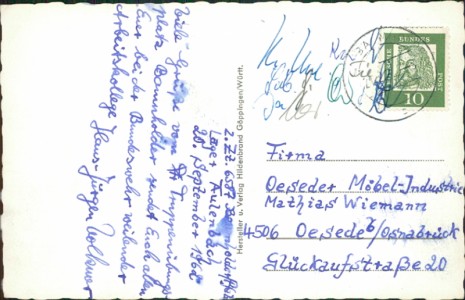 Viele Grüße vom Truppenübungs-
platz Baumholder sendet Euch allen
Euer bei der Bundeswehr weilender
Arbeitskollege Hans-Jürgen Volkmer
2. Zt. 6587 Baumholder
Lager Aulenbach
20. September 1962
Hersteller u. Verlag Hildenbrand Göppingen/Württ.
DEUTSCHE BUNDESPOST
10
Firma
Oeseder Möbel-Industrie
Mathias Wiemann
4506 Oesede b/Osnabrück
Glückaufstraße 20